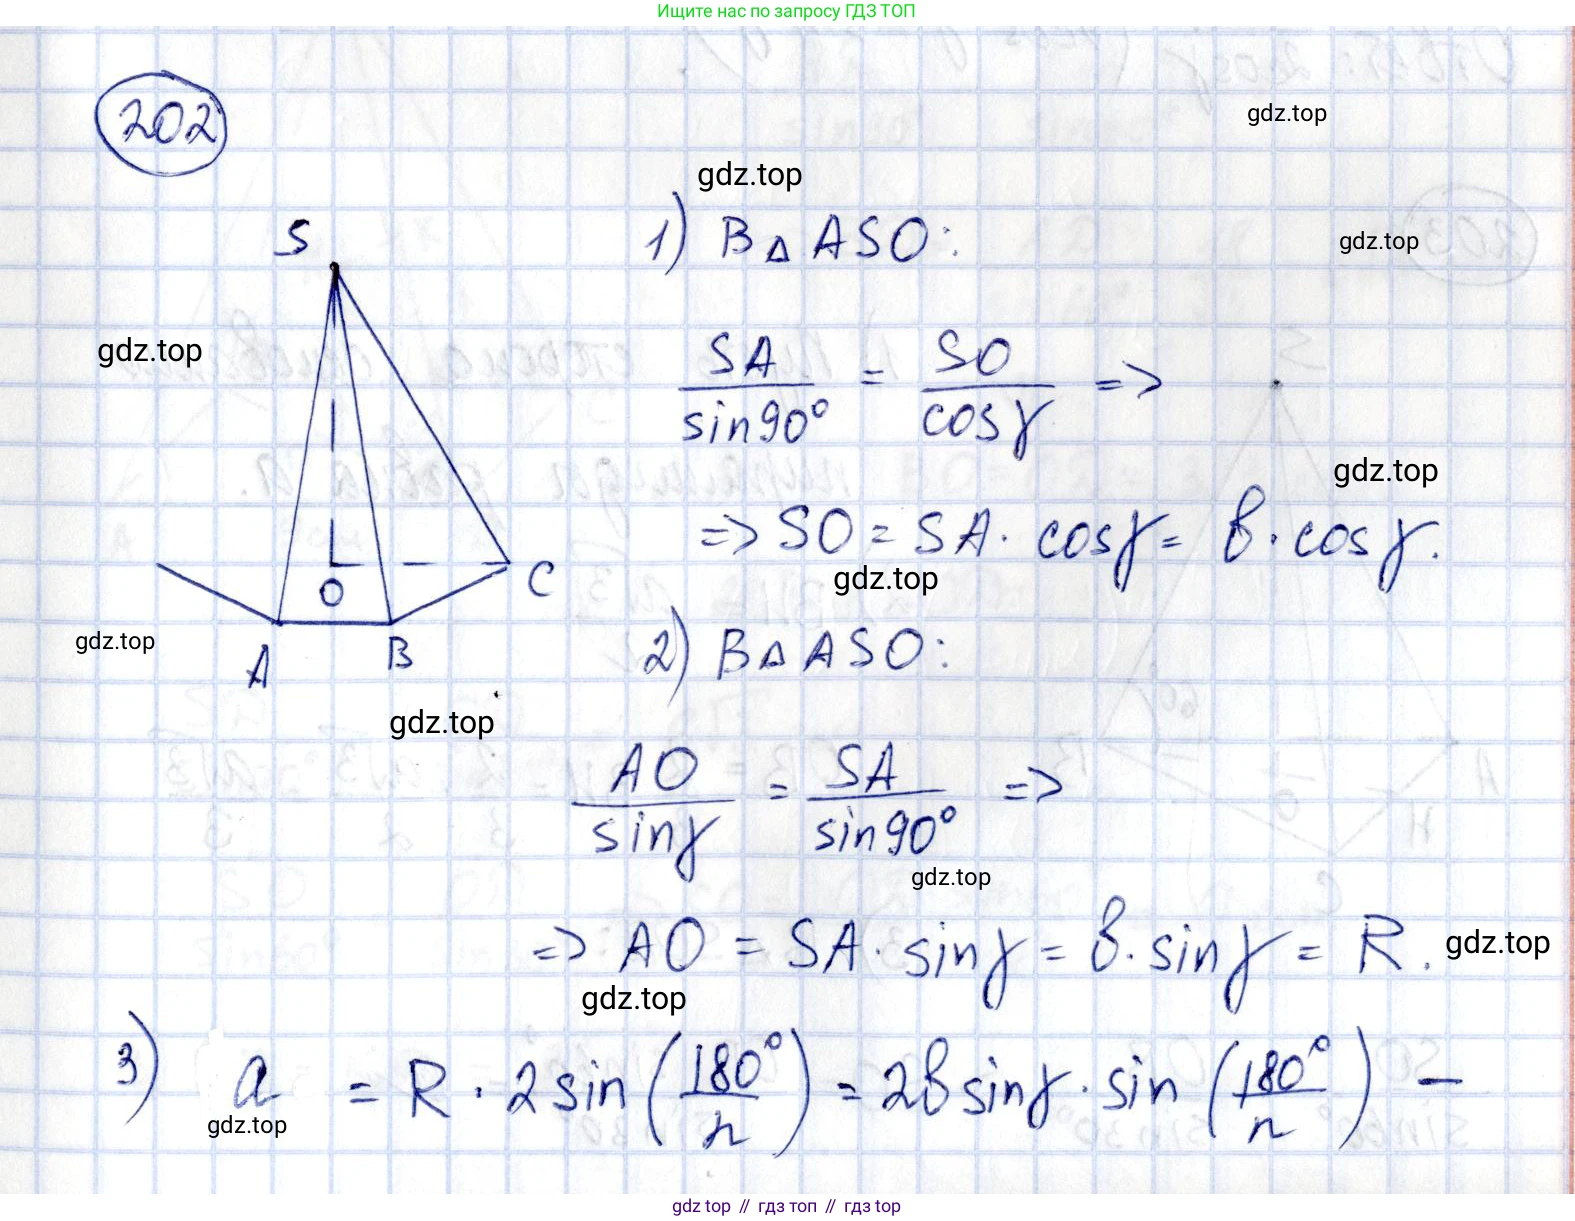 Ищите нас по запросу ГДЗ ТОП
202
gdz.top
gdz.top
gdz.top
S
1) В△ ASO:
gdz.top
SA/sin90° = SO/cosγ =>
gdz.top
=> SO = SA · cosγ = в · cosγ.
gdz.top
O
C
gdz.top
A
B
2) В△ ASO:
gdz.top
AO/sinγ = SA/sin90° =>
gdz.top
=> AO = SA · sinγ = в · sinγ = R.
gdz.top
gdz.top
3) a = R · 2sin(180°/n) = 2в sinγ · sin(180°/n) —
gdz.top
gdz.top // гдз топ // гдз top